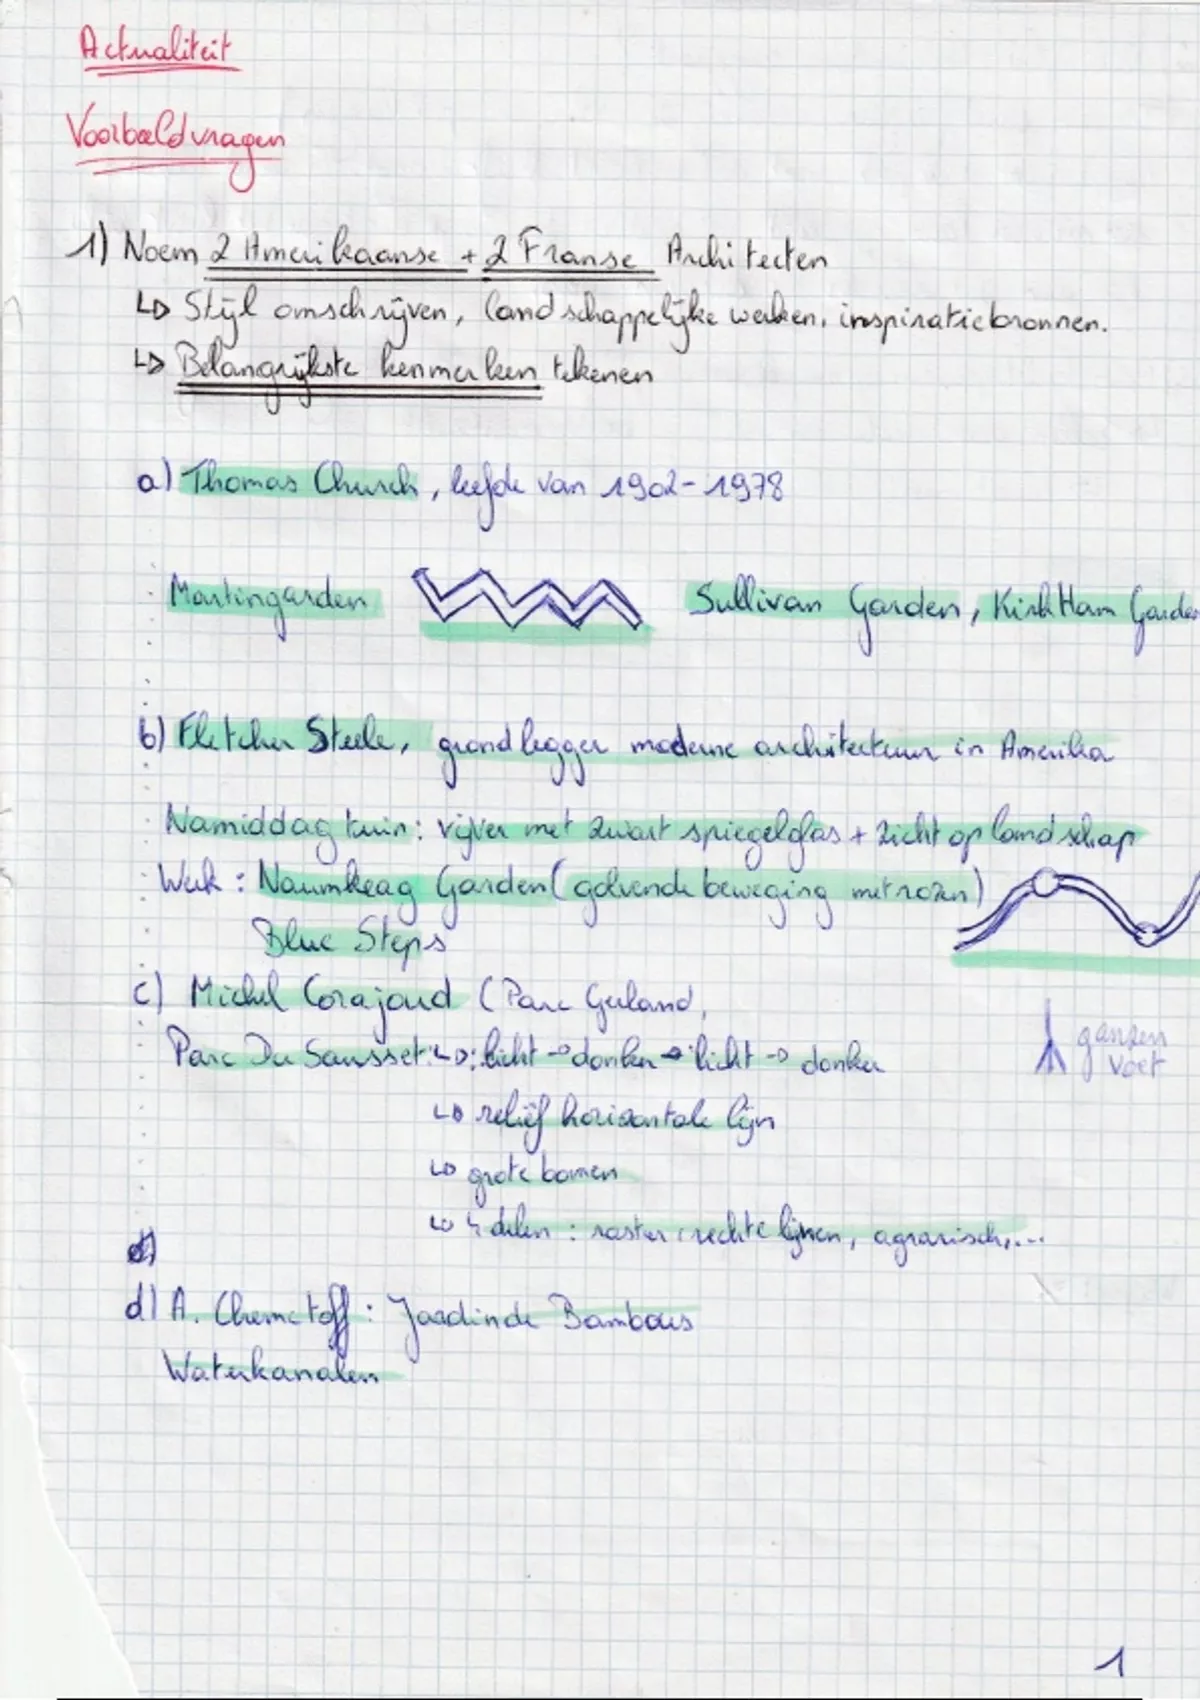 Actualiteit
Voorbeeldvragen
1) Noem 2 Amerikaanse + 2 Franse Architecten
↳ Stijl omschrijven, landschappelijke werken, inspiratiebronnen.
↳ Belangrijkste kenmerken tekenen
a) Thomas Church, leefde van 1902-1978
Martingarden Sullivan Garden, KirkHam Garden
b) Fletcher Steele, grondlegger moderne architectuur in Amerika
Namiddag tuin: vijver met zwart spiegelglas + zicht op landschap
Werk: Naumkeag Garden (golvende beweging met rozen)
Blue Steps
c) Michel Corajoud (Parc Gerland,
Parc Du Sausset: ↳: licht → donker → licht → donker
ganzen
voet
↳ reliëf horizontale lijn
↳ grote bomen
↳ 4 delen: raster rechte lijnen, agrarisch,...
d)
d) A. Chemetoff: Jardin de Bambous
Waterkanalen
1